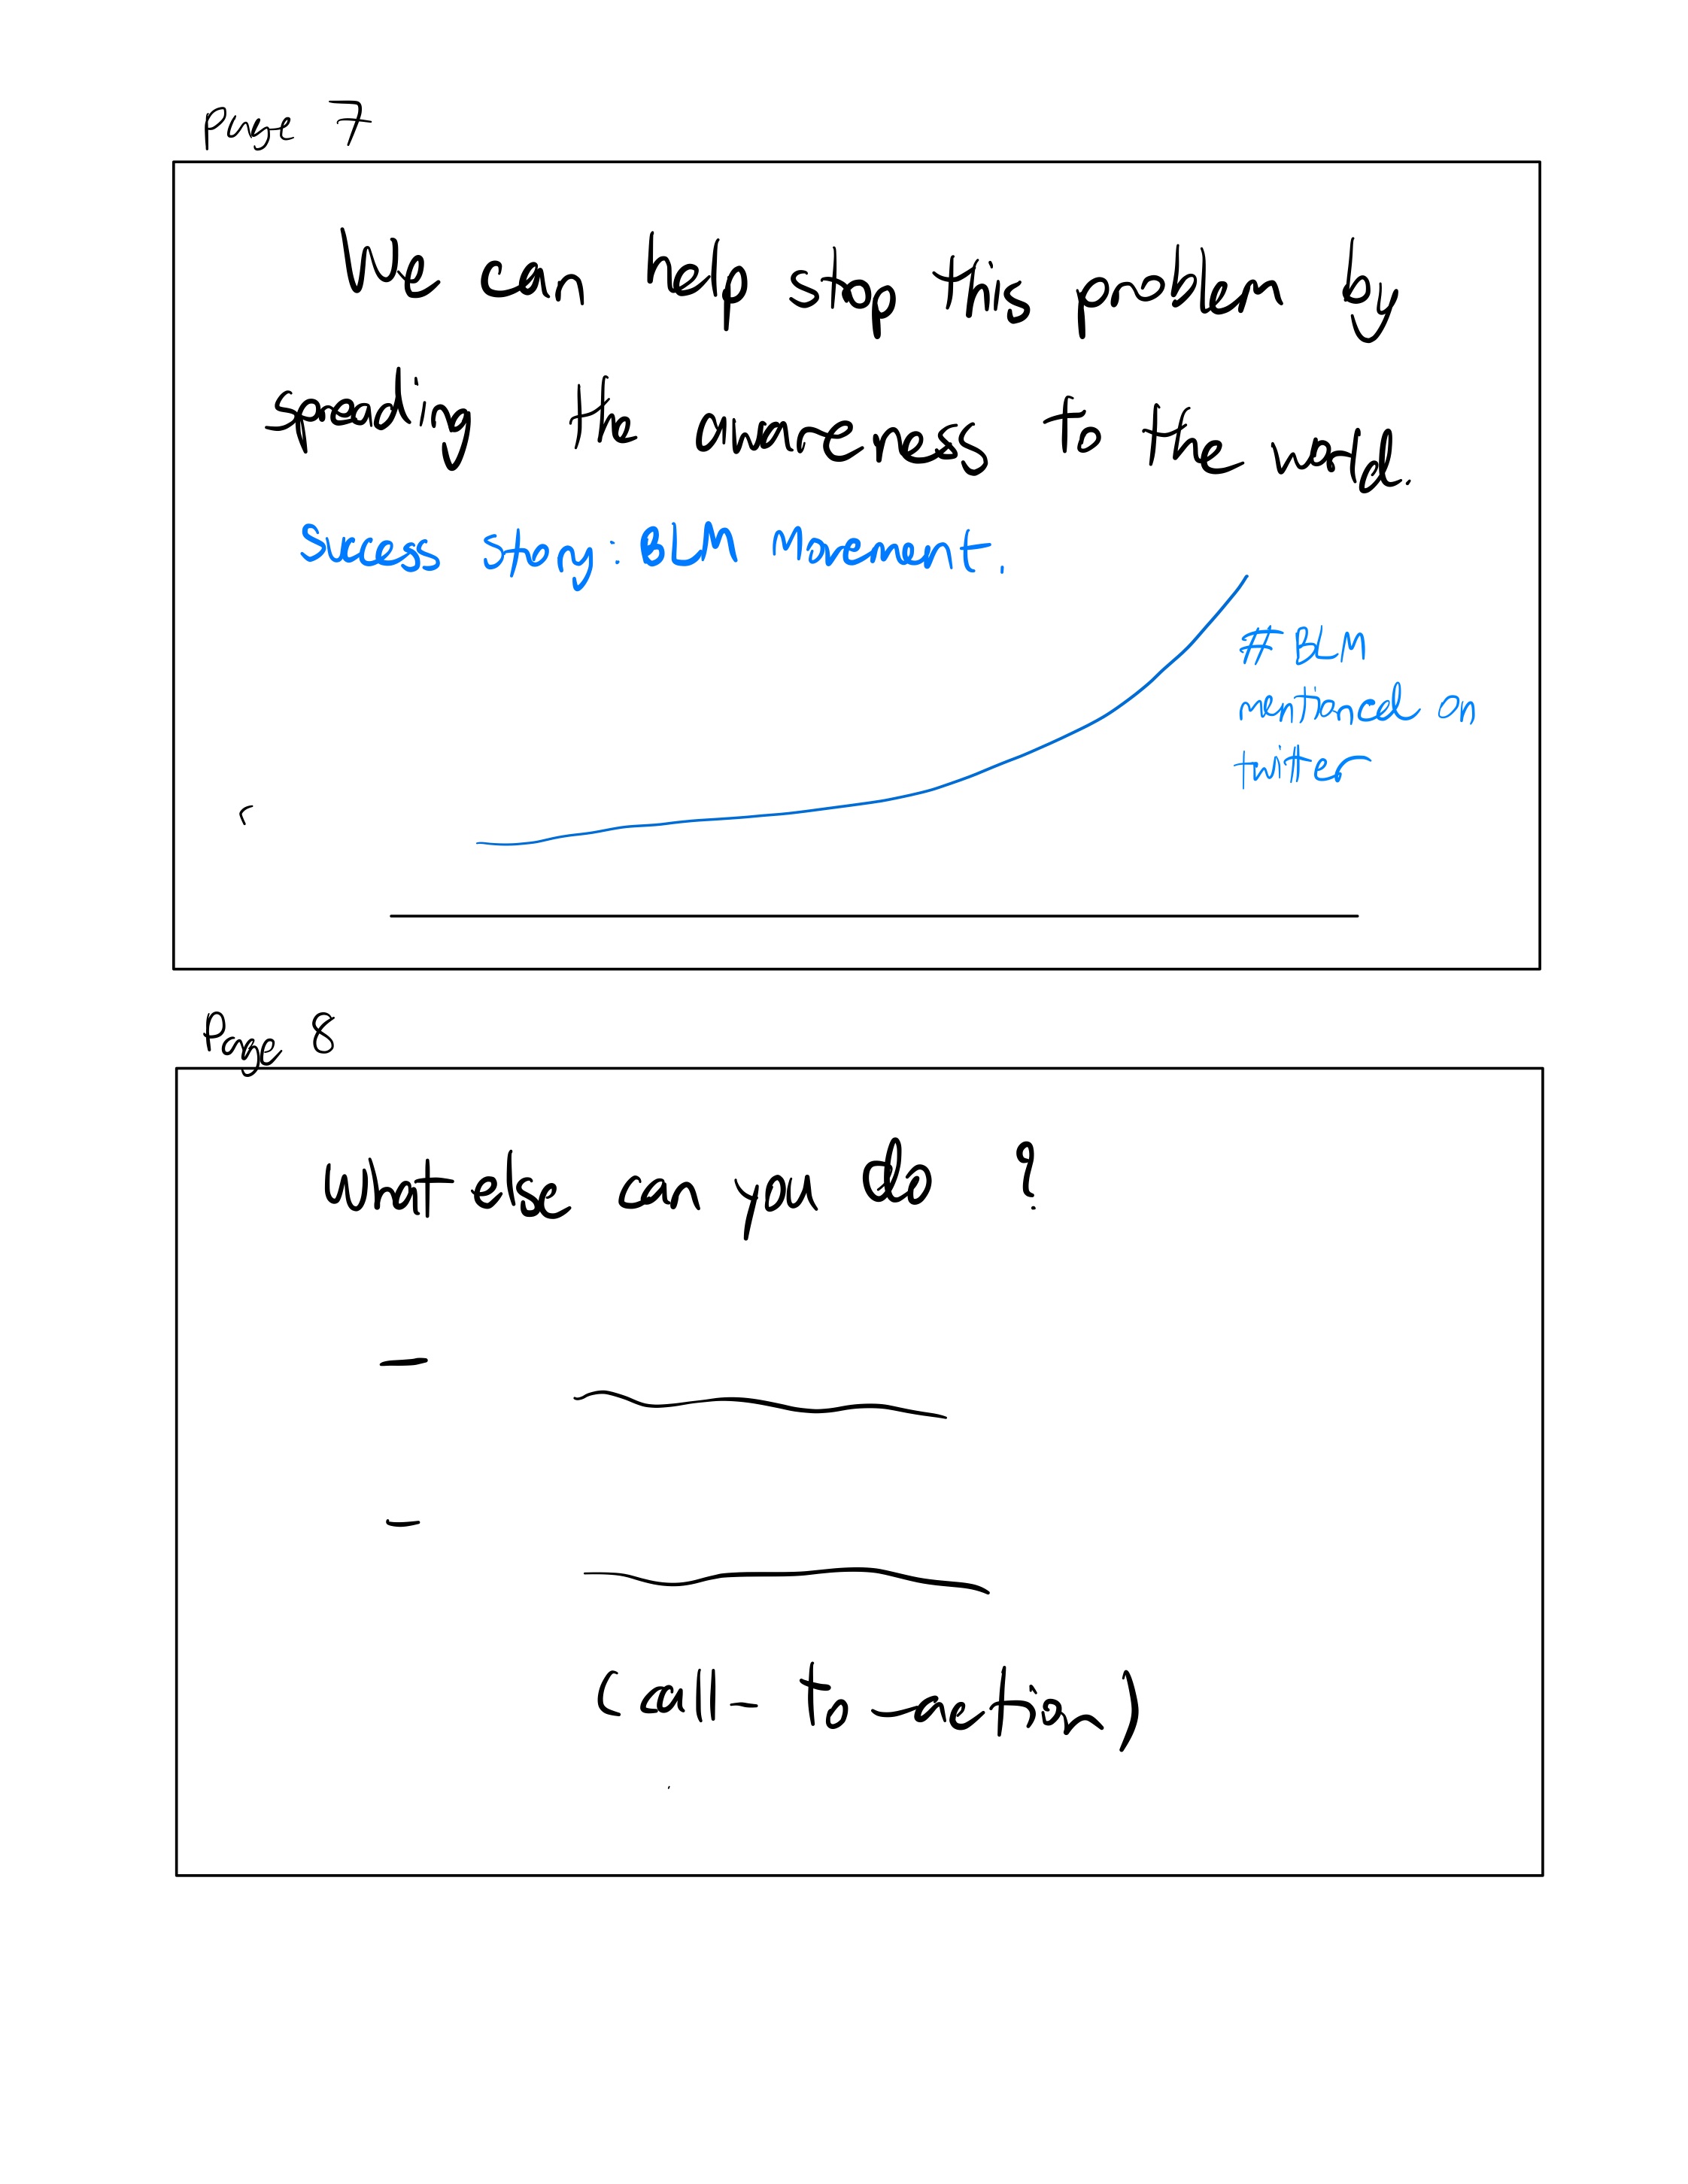 Page 7
We can help stop this problem by
speading the awareness to the world.
Success story: BLM Movement.
# BLM
mentioned on
twitter
Page 8
What else can you do ?
(call - to - action)